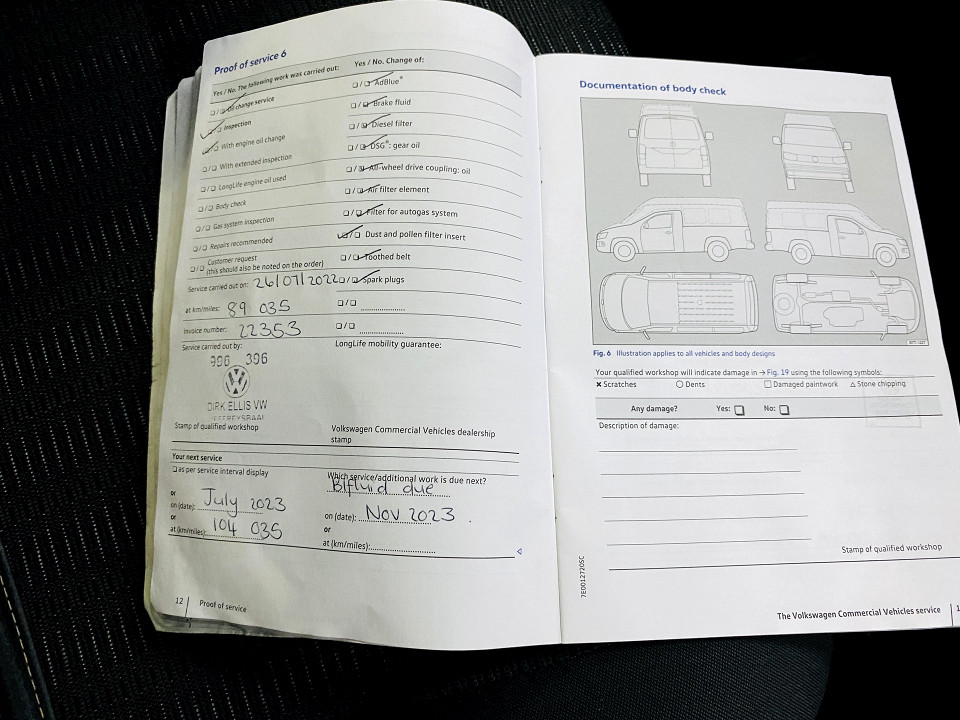 Proof of service 6
Yes / No. The following work was carried out:
❑/❑ Oil change service
❑/❑ Inspection
❑/❑ With engine oil change
❑/❑ With extended inspection
❑/❑ LongLife engine oil used
❑/❑ Body check
❑/❑ Gas system inspection
❑/❑ Repairs recommended
❑/❑ Customer request
(this should also be noted on the order)
Service carried out on: 26/07/2022
at km/miles: 89 035
Invoice number: 22353
Service carried out by:
996 396
DIRK ELLIS VW
JEFFREYSBAAI
Stamp of qualified workshop
Yes / No. Change of:
❑/❑ AdBlue®
❑/❑ Brake fluid
❑/❑ Diesel filter
❑/❑ DSG®: gear oil
❑/❑ All-wheel drive coupling: oil
❑/❑ Air filter element
❑/❑ Filter for autogas system
❑/❑ Dust and pollen filter insert
❑/❑ Toothed belt
❑/❑ Spark plugs
❑/❑
❑/❑
LongLife mobility guarantee:
Volkswagen Commercial Vehicles dealership
stamp
Your next service
❑ as per service interval display
or
on (date): July 2023
or
at (km/miles): 104 035
Which service/additional work is due next?
B/fluid due
on (date): Nov 2023
or
at (km/miles):
12 Proof of service
Documentation of body check
Fig. 6 Illustration applies to all vehicles and body designs
Your qualified workshop will indicate damage in → Fig. 19 using the following symbols:
✕ Scratches ○ Dents ❑ Damaged paintwork △ Stone chipping
Any damage? Yes: ❑ No: ❑
Description of damage:
Stamp of qualified workshop
7E0012720SC
The Volkswagen Commercial Vehicles service